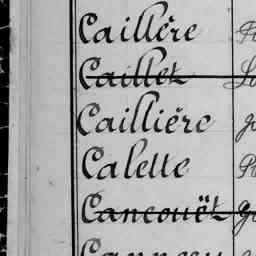 Caillère
Caillet
Caillière
Calette
Cancouët